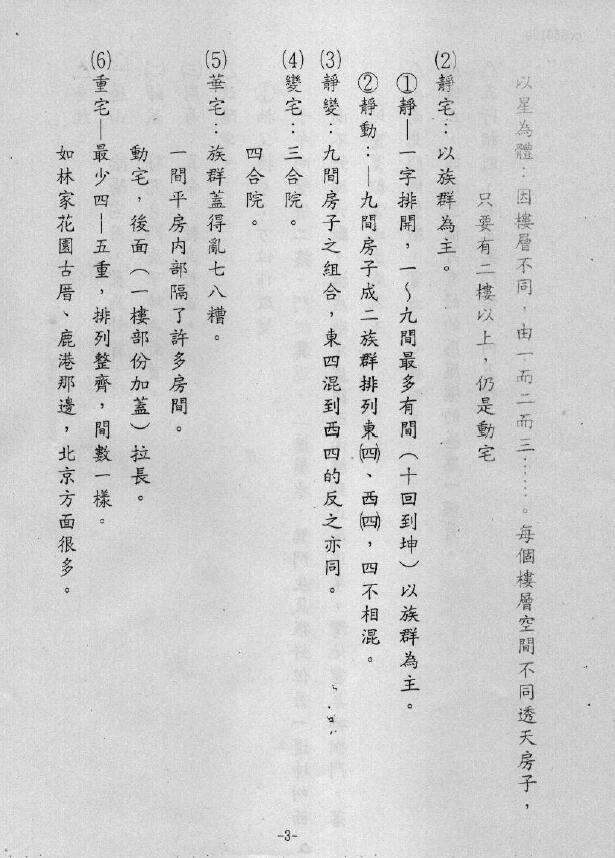 以星為體：因樓層不同，由一而二而三……。每個樓層空間不同透天房子，
只要有二樓以上，仍是動宅
(2)靜宅：以族群為主。
①靜—一字排開，一～九間最多有間（十回到坤）以族群為主。
②靜動：—九間房子成二族群排列東㈣、西㈣，四不相混。
(3)靜變：九間房子之組合，東四混到西四的反之亦同。
(4)變宅：三合院。
四合院。
(5)華宅：族群蓋得亂七八糟。
一間平房內部隔了許多房間。
動宅，後面（一樓部份加蓋）拉長。
(6)重宅—最少四—五重，排列整齊，間數一樣。
如林家花園古厝、鹿港那邊，北京方面很多。
-3-